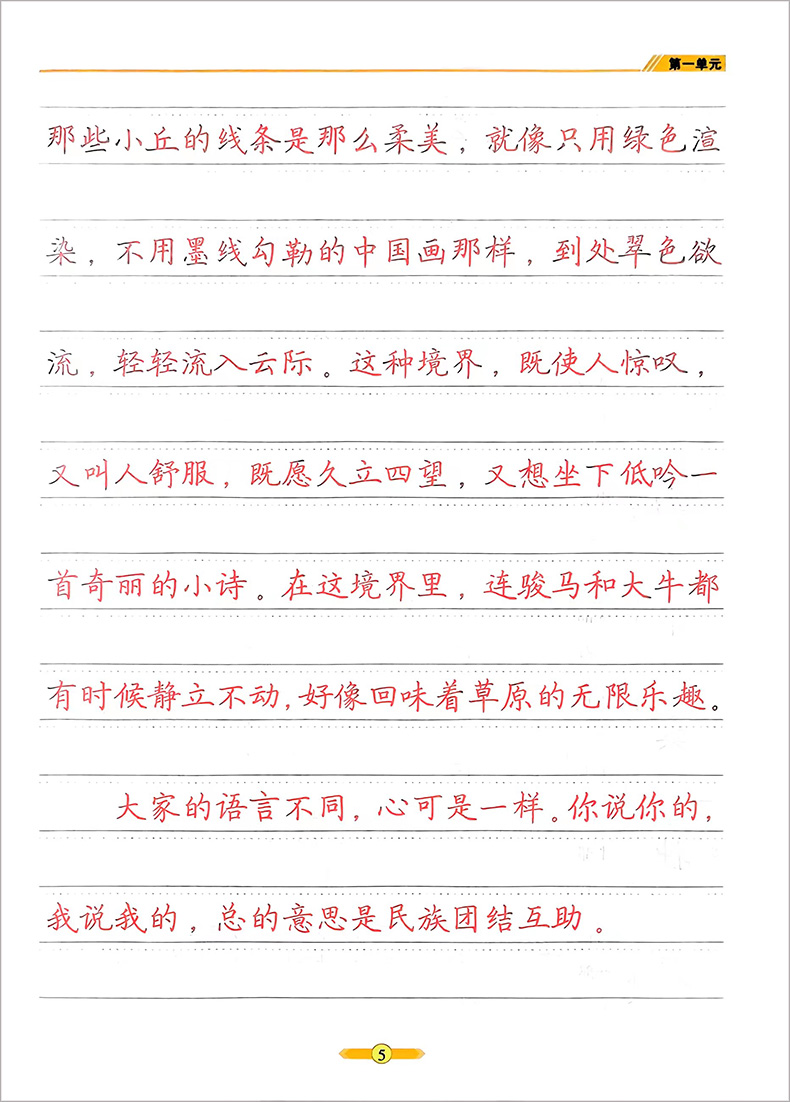 第一单元
那些小丘的线条是那么柔美，就像只用绿色渲
染，不用墨线勾勒的中国画那样，到处翠色欲
流，轻轻流入云际。这种境界，既使人惊叹，
又叫人舒服，既愿久立四望，又想坐下低吟一
首奇丽的小诗。在这境界里，连骏马和大牛都
有时候静立不动，好像回味着草原的无限乐趣。
大家的语言不同，心可是一样。你说你的，
我说我的，总的意思是民族团结互助。
5